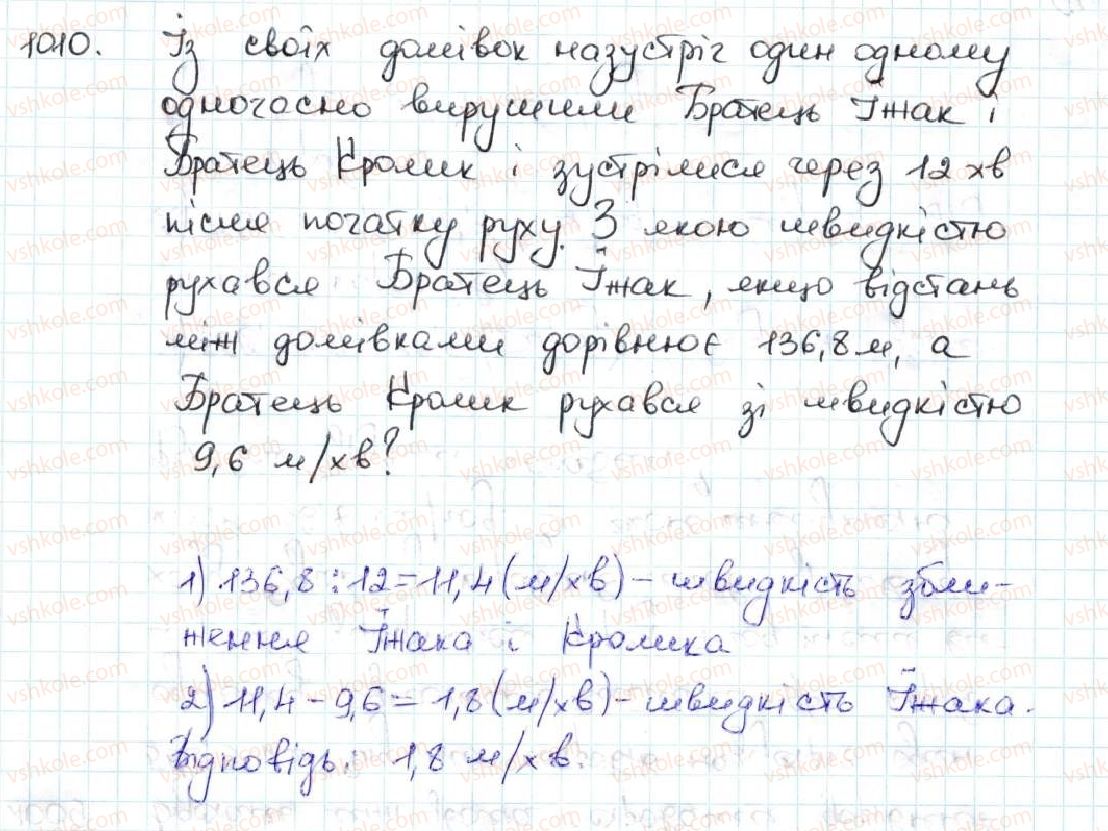 1010. Із своїх домівок назустріч один одному
одночасно вирушили Братець Їжак і
Братець Кролик і зустрілися через 12 хв
після початку руху. З якою швидкістю
рухався Братець Їжак, якщо відстань
між домівками дорівнює 136,8 м, а
Братець Кролик рухався зі швидкістю
9,6 м/хв?
1) 136,8 : 12 = 11,4 (м/хв) - швидкість збли-
ження Їжака і Кролика
2) 11,4 - 9,6 = 1,8 (м/хв) - швидкість Їжака.
Відповідь: 1,8 м/хв.